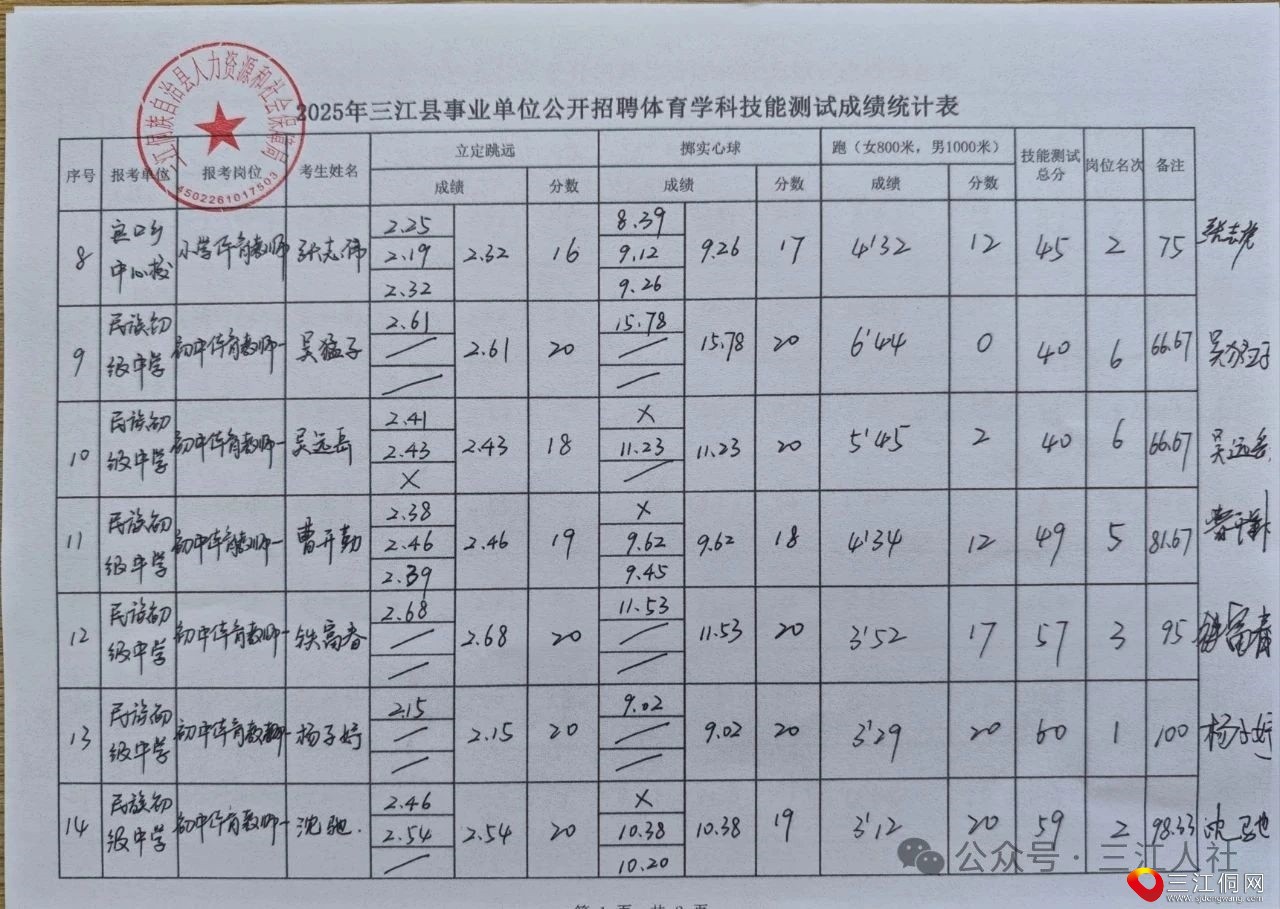 三江侗族自治县人力资源和社会保障局
4502261017503
2025年三江县事业单位公开招聘体育学科技能测试成绩统计表
序号 报考单位 报考岗位 考生姓名 立定跳远 掷实心球 跑（女800米，男1000米） 技能测试总分 岗位名次 备注
成绩 分数 成绩 分数 成绩 分数
8 宜口乡中心校 小学体育教师 张志伟 2.25 2.19 2.32 2.32 16 8.39 9.12 9.26 9.26 17 4'32 12 45 2 75
9 民族初级中学 初中体育教师一 吴猛子 2.61 / / 2.61 20 15.78 / / 15.78 20 6'44 0 40 6 66.67
10 民族初级中学 初中体育教师一 吴远岳 2.41 2.43 X 2.43 18 X 11.23 / 11.23 20 5'45 2 40 6 66.67 吴远岳
11 民族初级中学 初中体育教师一 曹开勤 2.38 2.46 2.39 2.46 19 X 9.62 9.45 9.62 18 4'34 12 49 5 81.67
12 民族初级中学 初中体育教师一 铁富春 2.68 / / 2.68 20 11.53 / / 11.53 20 3'52 17 57 3 95 铁富春
13 民族初级中学 初中体育教师 杨子婷 2.15 / / 2.15 20 9.02 / / 9.02 20 3'29 20 60 1 100 杨子婷
14 民族初级中学 初中体育教师一 沈驰. 2.46 2.54 / 2.54 20 X 10.38 10.20 10.38 19 3'12 20 59 2 98.33 沈驰
公众号·三江人社
三江侗网
www.sjdongwang.com